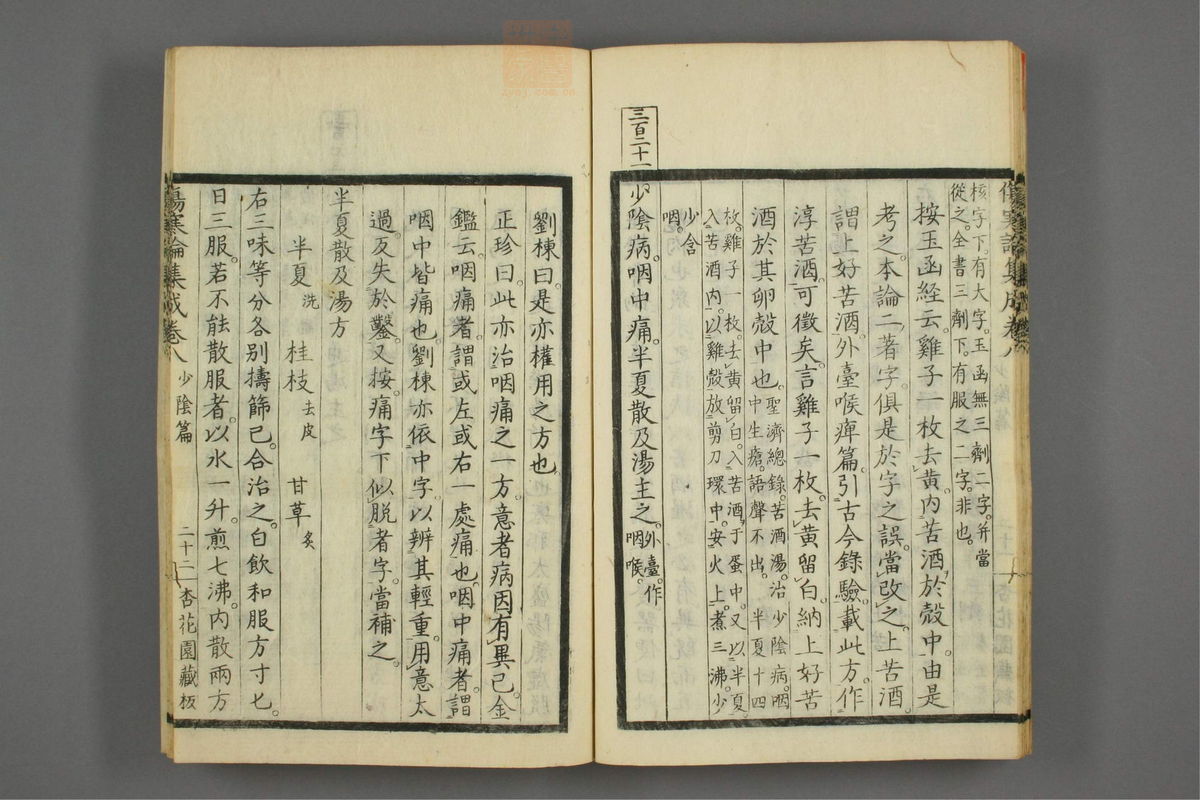 傷寒論集成卷八
少陰篇
杏花園藏板
核字下。有大字。玉函無三劑二字。并當
從之。全書三劑下。有服之二字。非也。
按玉函經云。雞子一枚去黃。內苦酒。於殼中。由是
考之。本論二著字。俱是於字之誤。當改之。上苦酒
謂上好苦酒。外臺喉痺篇。引古今錄驗。載此方。作
淳苦酒。可徵矣。言雞子一枚。去黃留白。納上好苦
酒於其卵殼中也。聖濟總錄。苦酒湯。治少陰病。咽
中生瘡。語聲不出。半夏十四
枚。雞子一枚。去黃留白。入苦酒于蛋中。又以半夏
入苦酒內。以雞殼放剪刀環中。安火上。煮三沸。少
少含
咽。
三百二十一
少陰病。咽中痛。半夏散及湯主之。外臺。作
咽喉。
劉棟曰。是亦權用之方也
正珍曰。此亦治咽痛之一方。意者病因有異已。金
鑑云。咽痛者。謂或左或右一處痛也。咽中痛者。謂
咽中皆痛也。劉棟亦依中字。以辨其輕重。用意太
過。反失於鑿。又按。痛字下似脫者字。當補之。
半夏散及湯方
半夏 洗 桂枝 去皮 甘草 炙
右三味等分各別擣篩已。合治之。白飲和服方寸匕。
日三服。若不能散服者。以水一升。煎七沸。內散兩方
傷寒論集成卷八
少陰篇
二十二
杏花園藏板